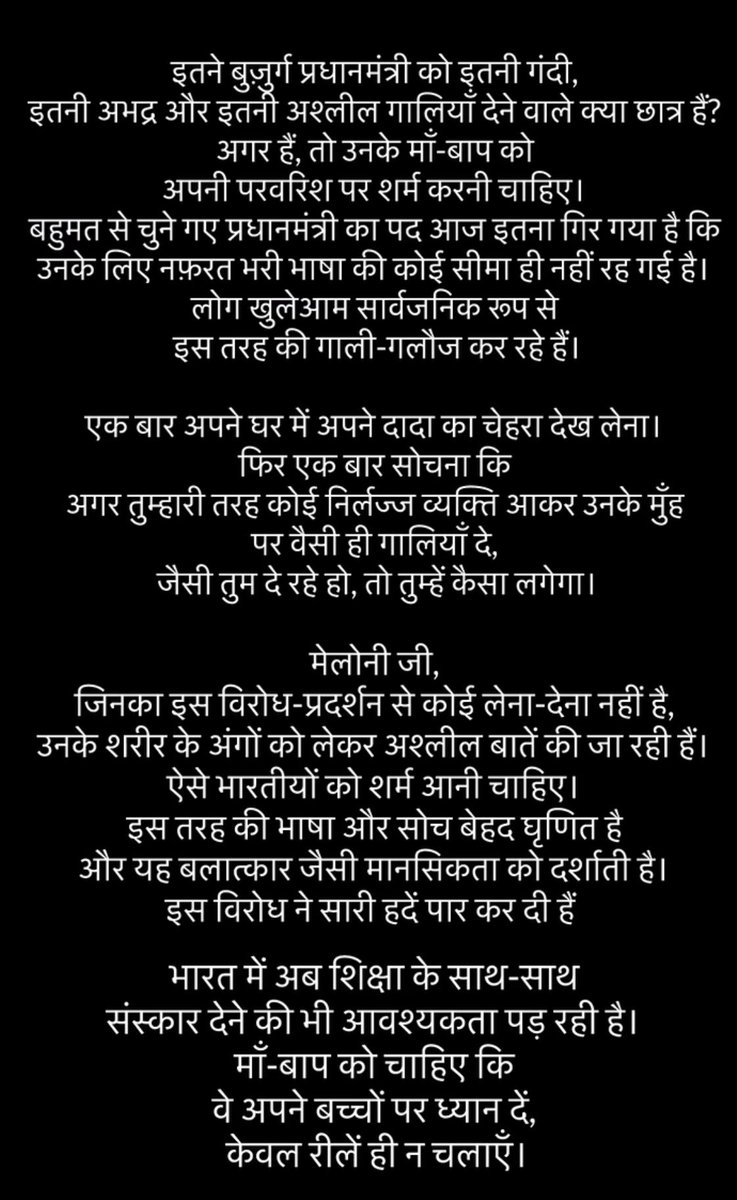 इतने बुज़ुर्ग प्रधानमंत्री को इतनी गंदी,
इतनी अभद्र और इतनी अश्लील गालियाँ देने वाले क्या छात्र हैं?
अगर हैं, तो उनके माँ-बाप को
अपनी परवरिश पर शर्म करनी चाहिए।
बहुमत से चुने गए प्रधानमंत्री का पद आज इतना गिर गया है कि
उनके लिए नफ़रत भरी भाषा की कोई सीमा ही नहीं रह गई है।
लोग खुलेआम सार्वजनिक रूप से
इस तरह की गाली-गलौज कर रहे हैं।
एक बार अपने घर में अपने दादा का चेहरा देख लेना।
फिर एक बार सोचना कि
अगर तुम्हारी तरह कोई निर्लज्ज व्यक्ति आकर उनके मुँह
पर वैसी ही गालियाँ दे,
जैसी तुम दे रहे हो, तो तुम्हें कैसा लगेगा।
मेलोनी जी,
जिनका इस विरोध-प्रदर्शन से कोई लेना-देना नहीं है,
उनके शरीर के अंगों को लेकर अश्लील बातें की जा रही हैं।
ऐसे भारतीयों को शर्म आनी चाहिए।
इस तरह की भाषा और सोच बेहद घृणित है
और यह बलात्कार जैसी मानसिकता को दर्शाती है।
इस विरोध ने सारी हदें पार कर दी हैं
भारत में अब शिक्षा के साथ-साथ
संस्कार देने की भी आवश्यकता पड़ रही है।
माँ-बाप को चाहिए कि
वे अपने बच्चों पर ध्यान दें,
केवल रीलें ही न चलाएँ।